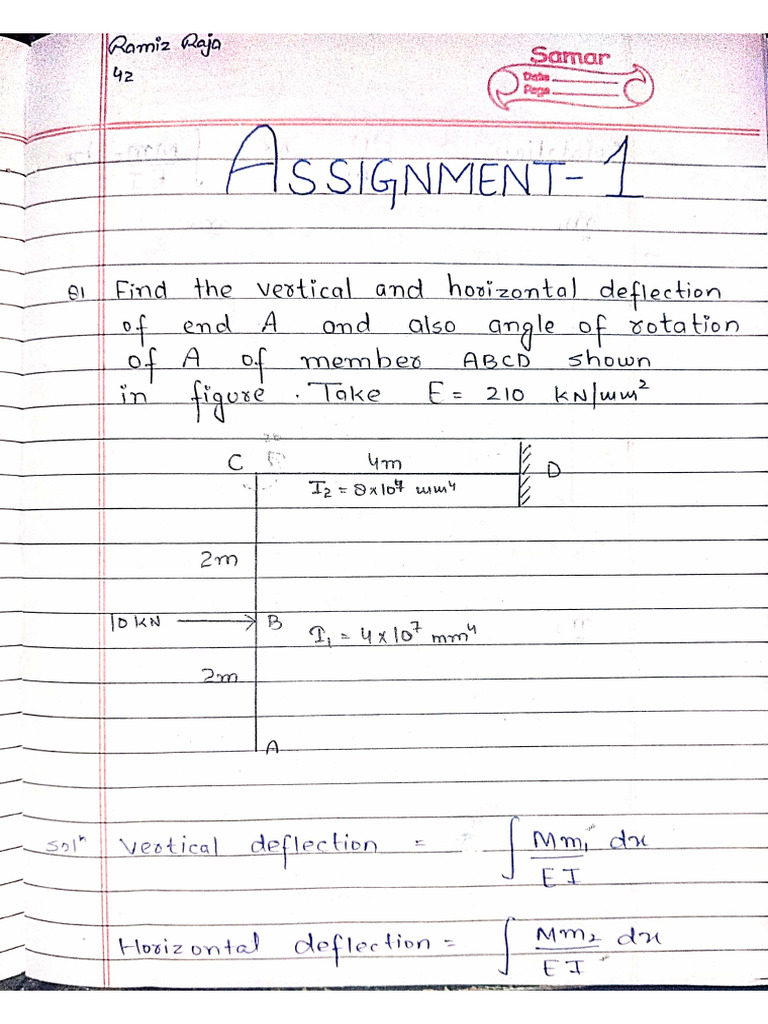 Ramiz Raja
42
Samar
Date
Page
ASSIGNMENT-1
Q1 Find the vertical and horizontal deflection
of end A and also angle of rotation
of A of member ABCD shown
in figure. Take E = 210 kN/mm²
C 4m D
I₂ = 8×10⁷ mm⁴
2m
10 KN B
I₁ = 4×10⁷ mm⁴
2m
A
Solⁿ Vertical deflection = ∫ Mm₁ dx / EI
Horizontal deflection = ∫ Mm₂ dx / EI